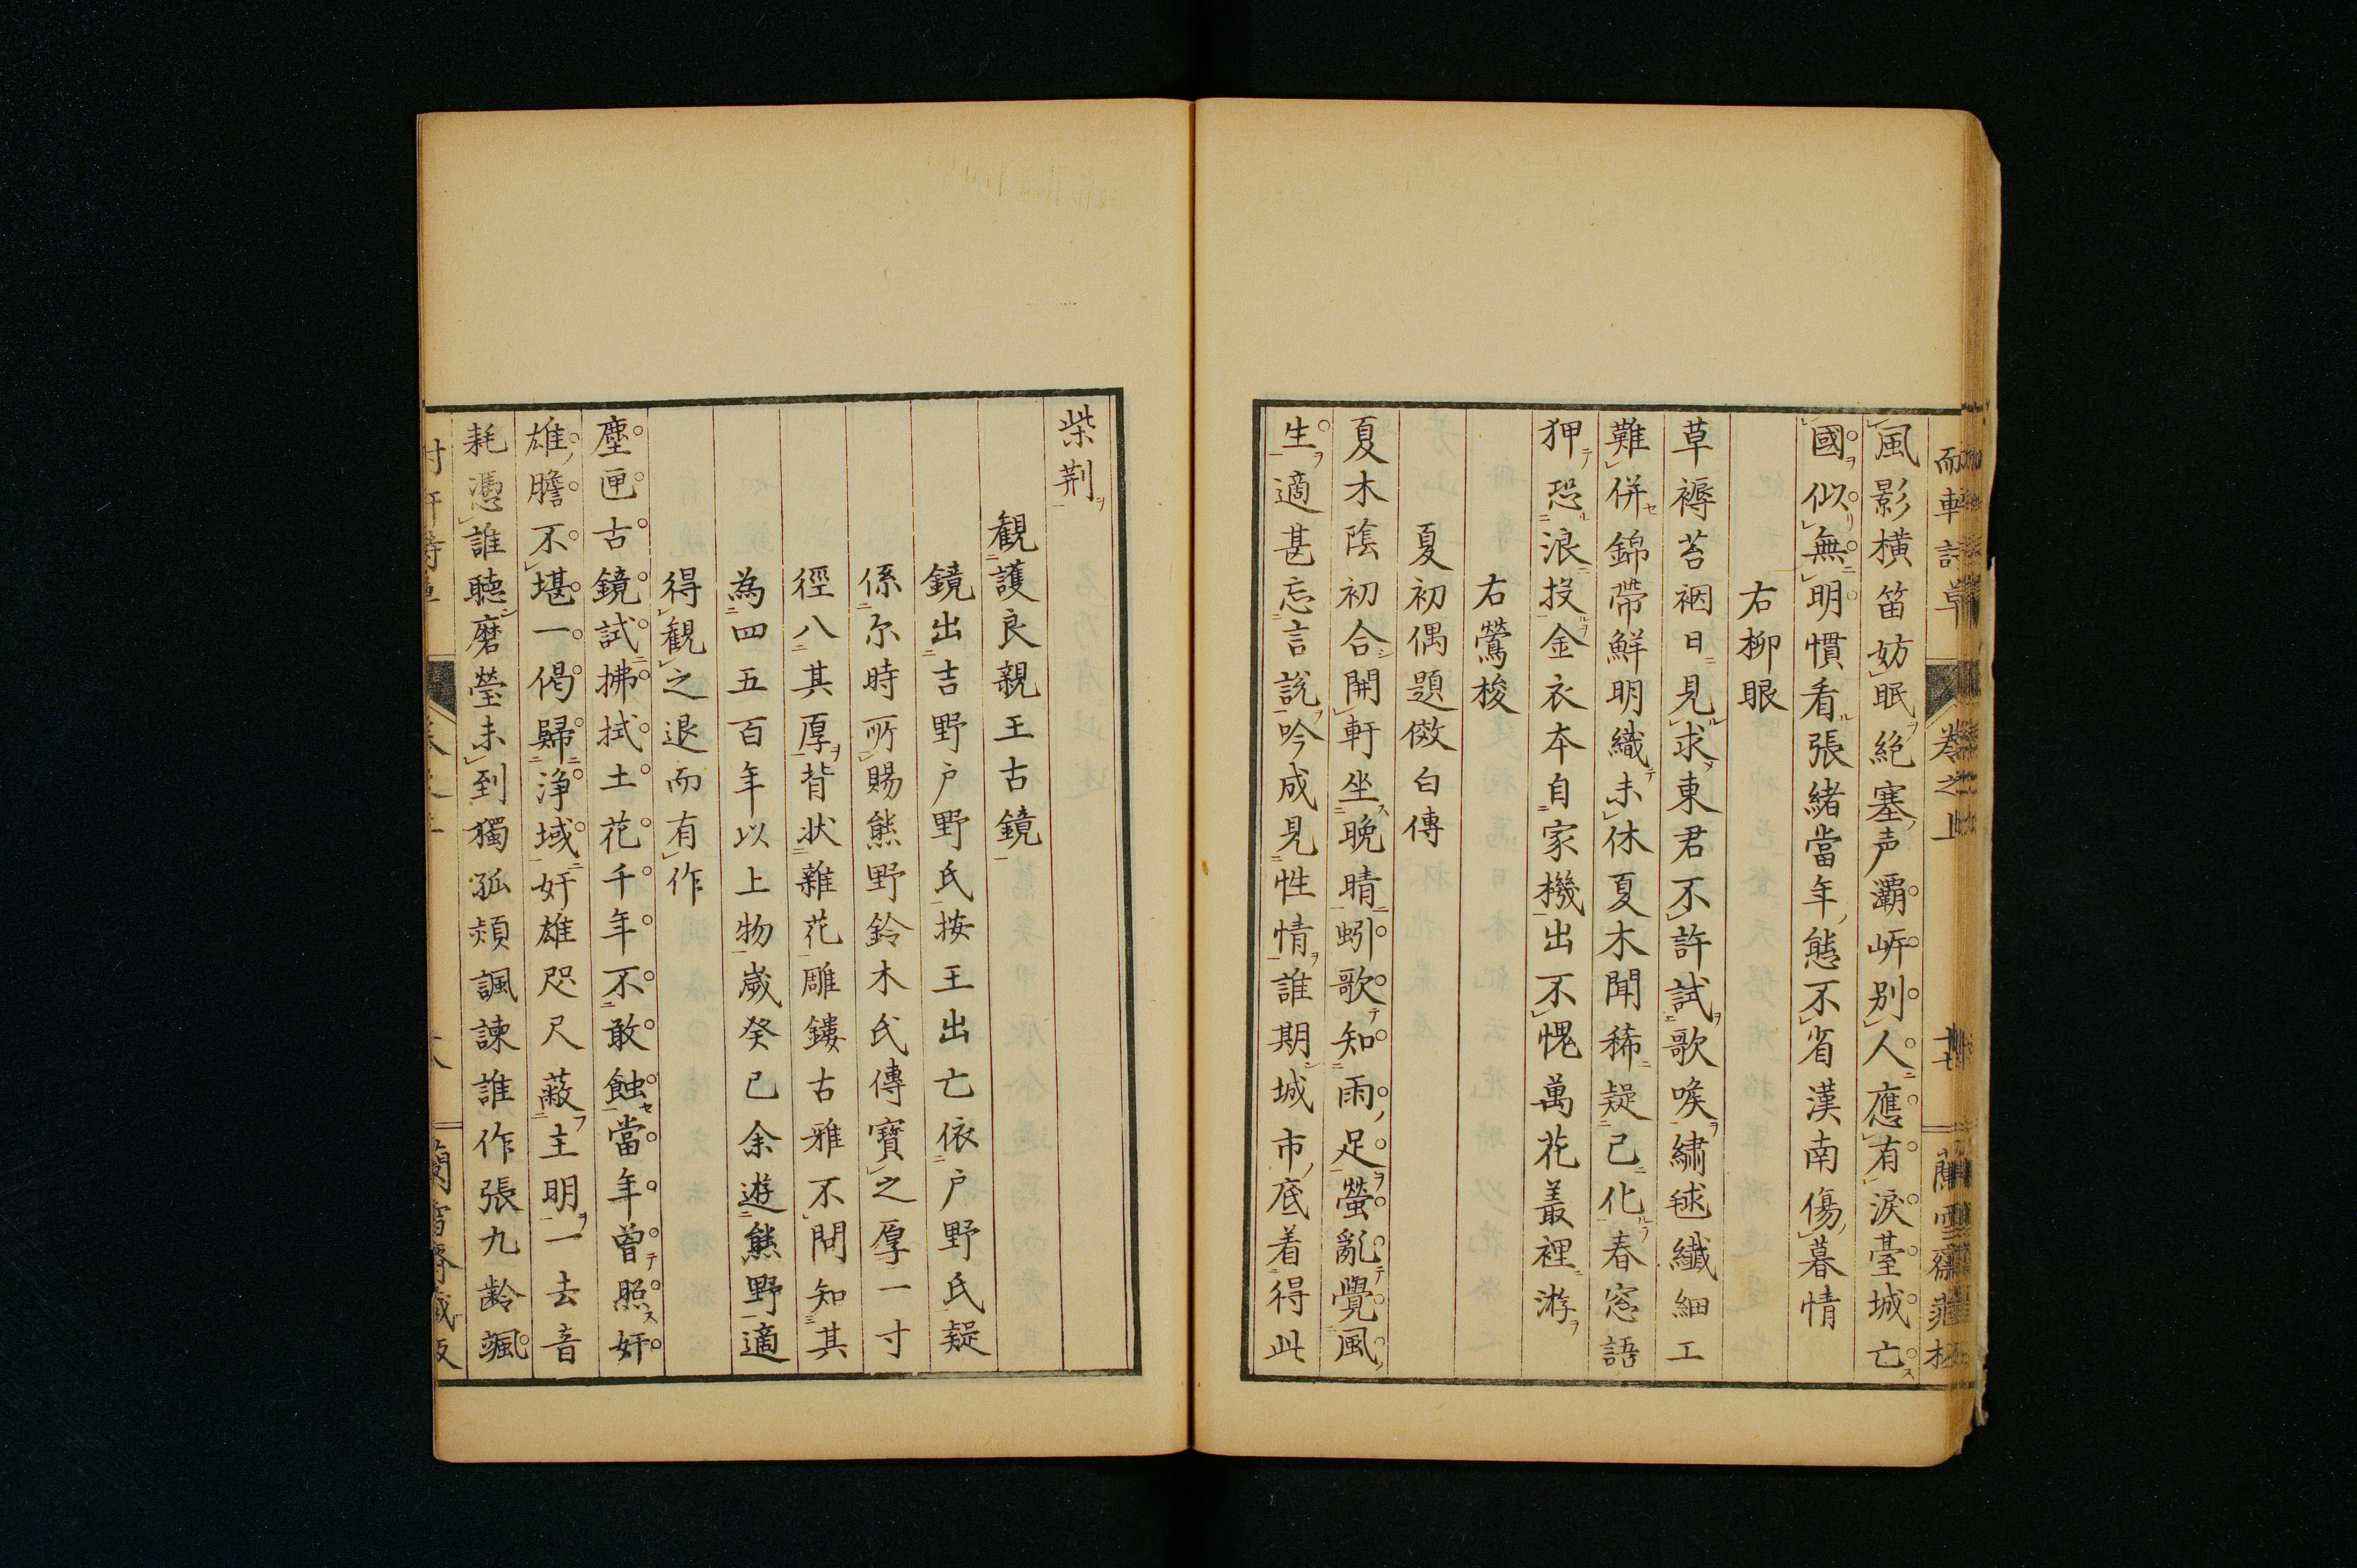 風影横笛妨眠絶塞声灞岍別人應有淚臺城亡
國似無明慣看張緒當年態不省漢南傷暮情
右柳眼
草褥苔裀日見求東君不許試歌喉繡毬纖細工
難併錦帶鮮明織未休夏木聞稀疑已化春窓語
狎恐浪投金衣本自家機出不愧萬花叢裡游
右鶯梭
夏初偶題傚白傳
夏木陰初合開軒坐晩晴蚓歌知雨足螢亂覺風
生適甚忘言説吟成見性情誰期城市底着得此
柴荆
観護良親王古鏡
鏡出吉野户野氏按王出亡依户野氏疑
係尓時所賜熊野鈴木氏傳寶之厚一寸
徑八其厚背状雜花雕鏤古雅不問知其
為四五百年以上物歳癸已余遊熊野適
得観之退而有作
塵匣古鏡試拂拭土花千年不敢蝕當年曾照奸
雄膽不堪一偈歸浄域奸雄咫尺蔽主明一去音
耗憑誰聴磨瑩未到獨孤頻諷諫誰作張九齡颯
卷之上